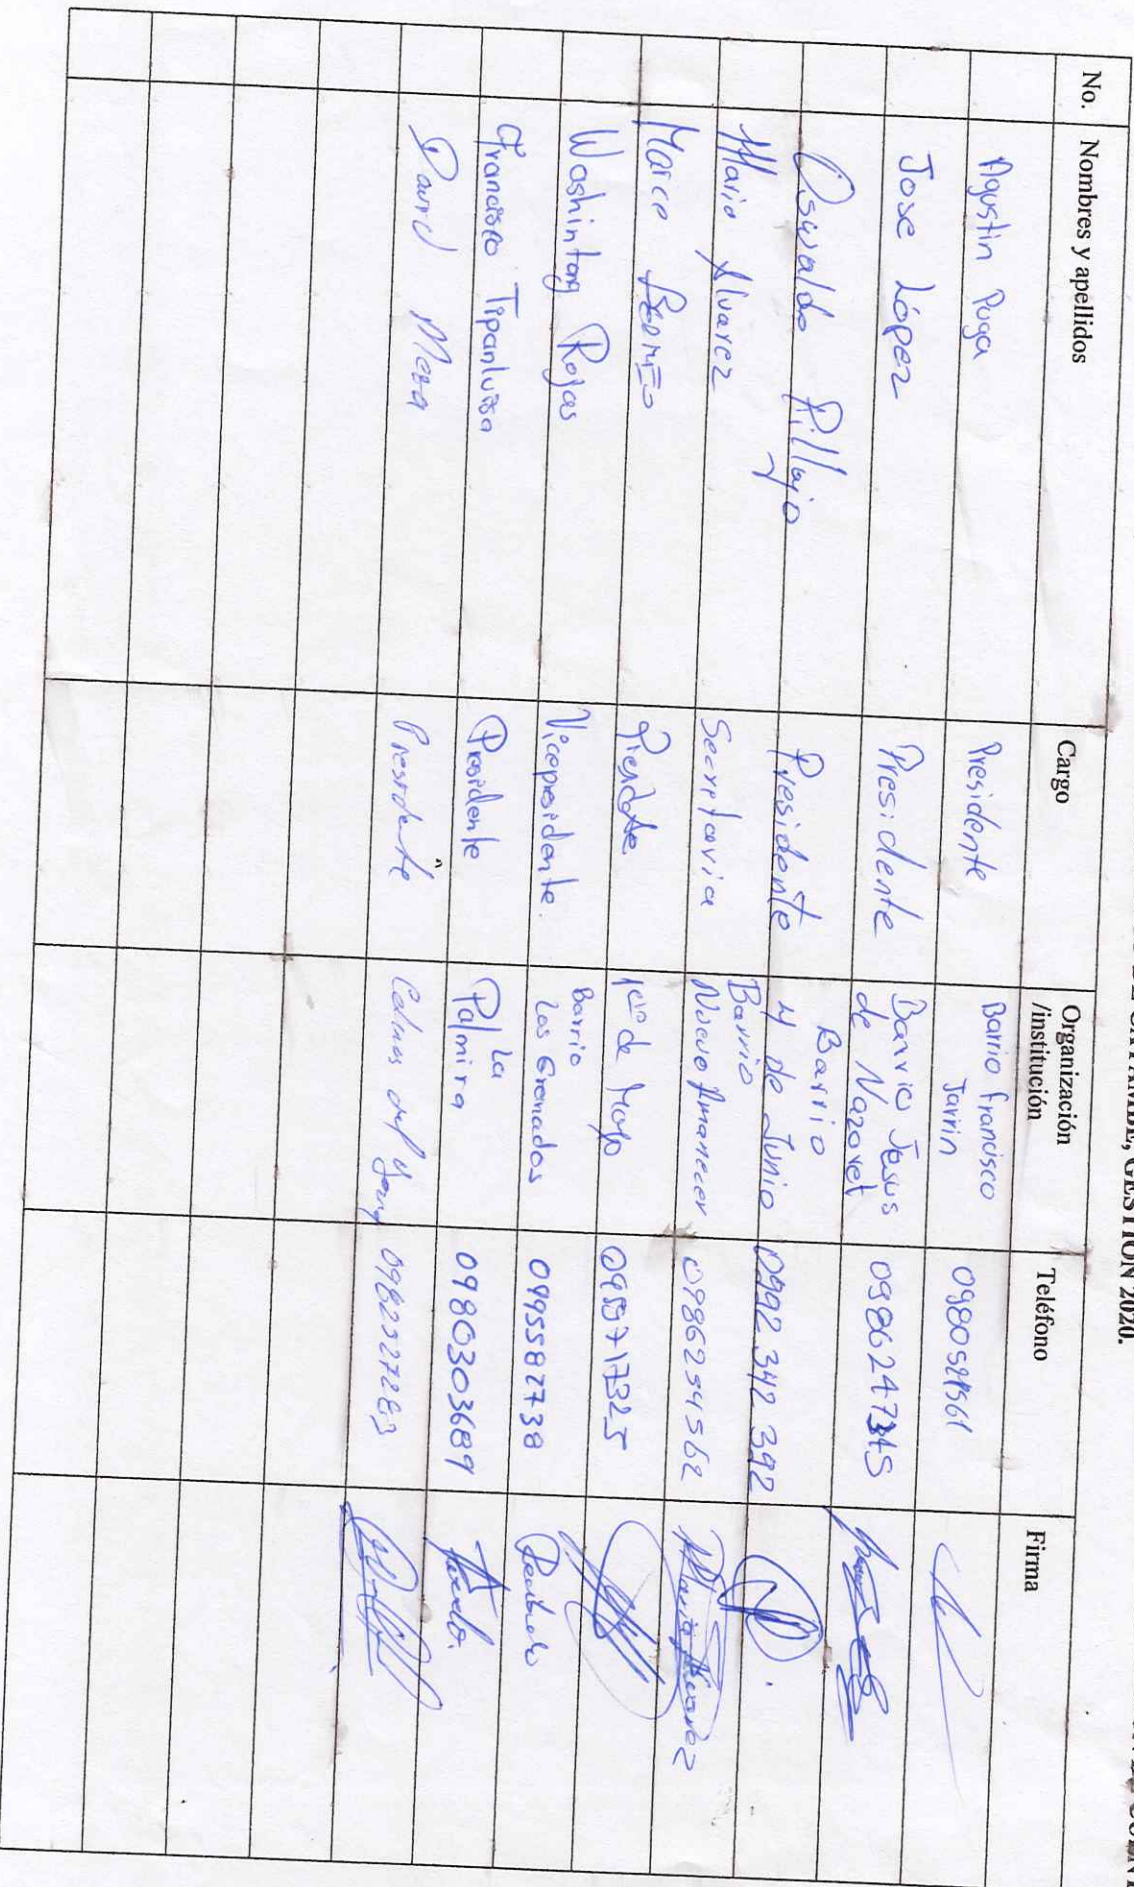 CAYAMBE, GESTIÓN 2020.
No. Nombres y apellidos Cargo Organización /institución Teléfono Firma
Agustin Puga Presidente Barrio Francisco Jarrin
Jose López Presidente Barrio Jesus de Nazaret
Oswaldo Pillajo Presidente Barrio 4 de Junio 0992 342 392
Mario Alvarez Secretaria Barrio Nuevo Amanecer 0986254562 Mario Alvarez
Marco Bermeo 1ero de Mayo 0959717325
Washintong Rojas Vicepresidente. Barrio Las Granados 0995582738
Francisco Tipanluisa Presidente La Palmira 0980303689
David Mesa Presidente 0982527283